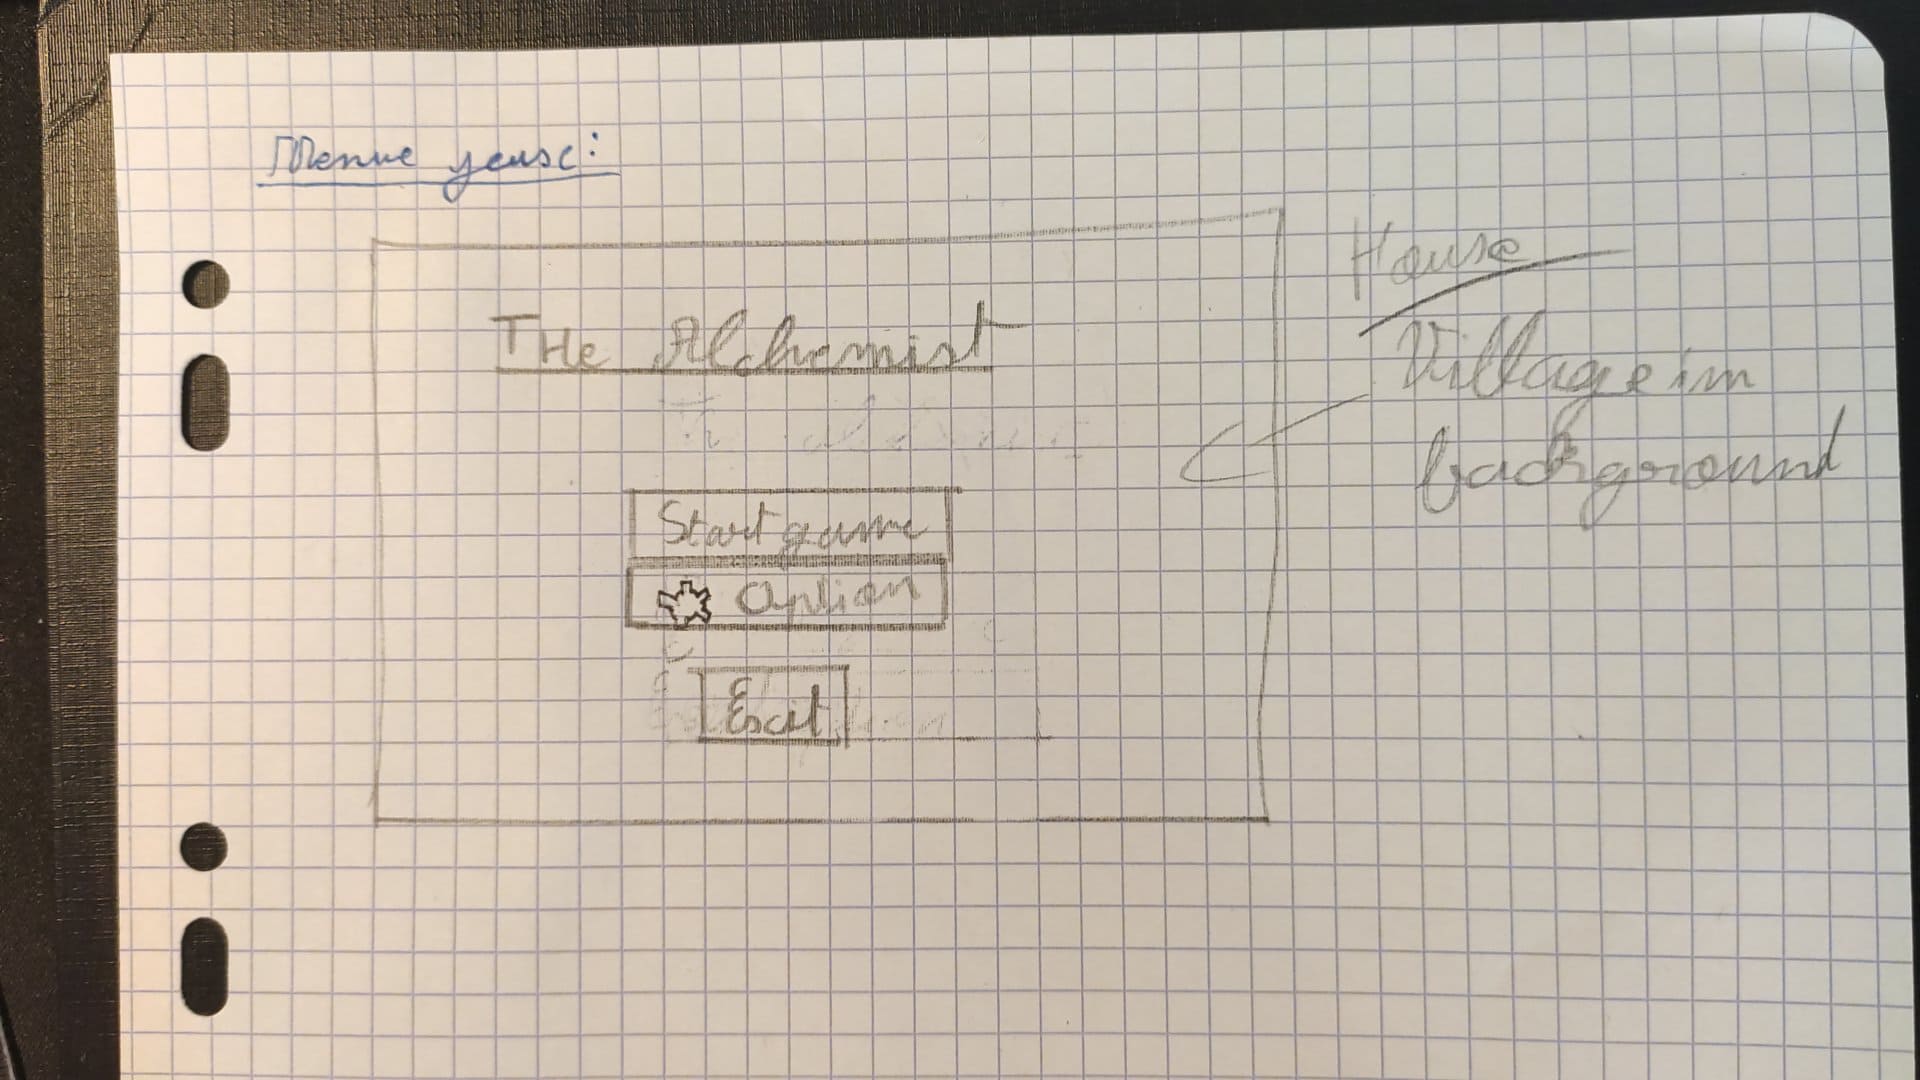 Menue
THe Alchemist
Start game
Option
Exit
House
Village im
background